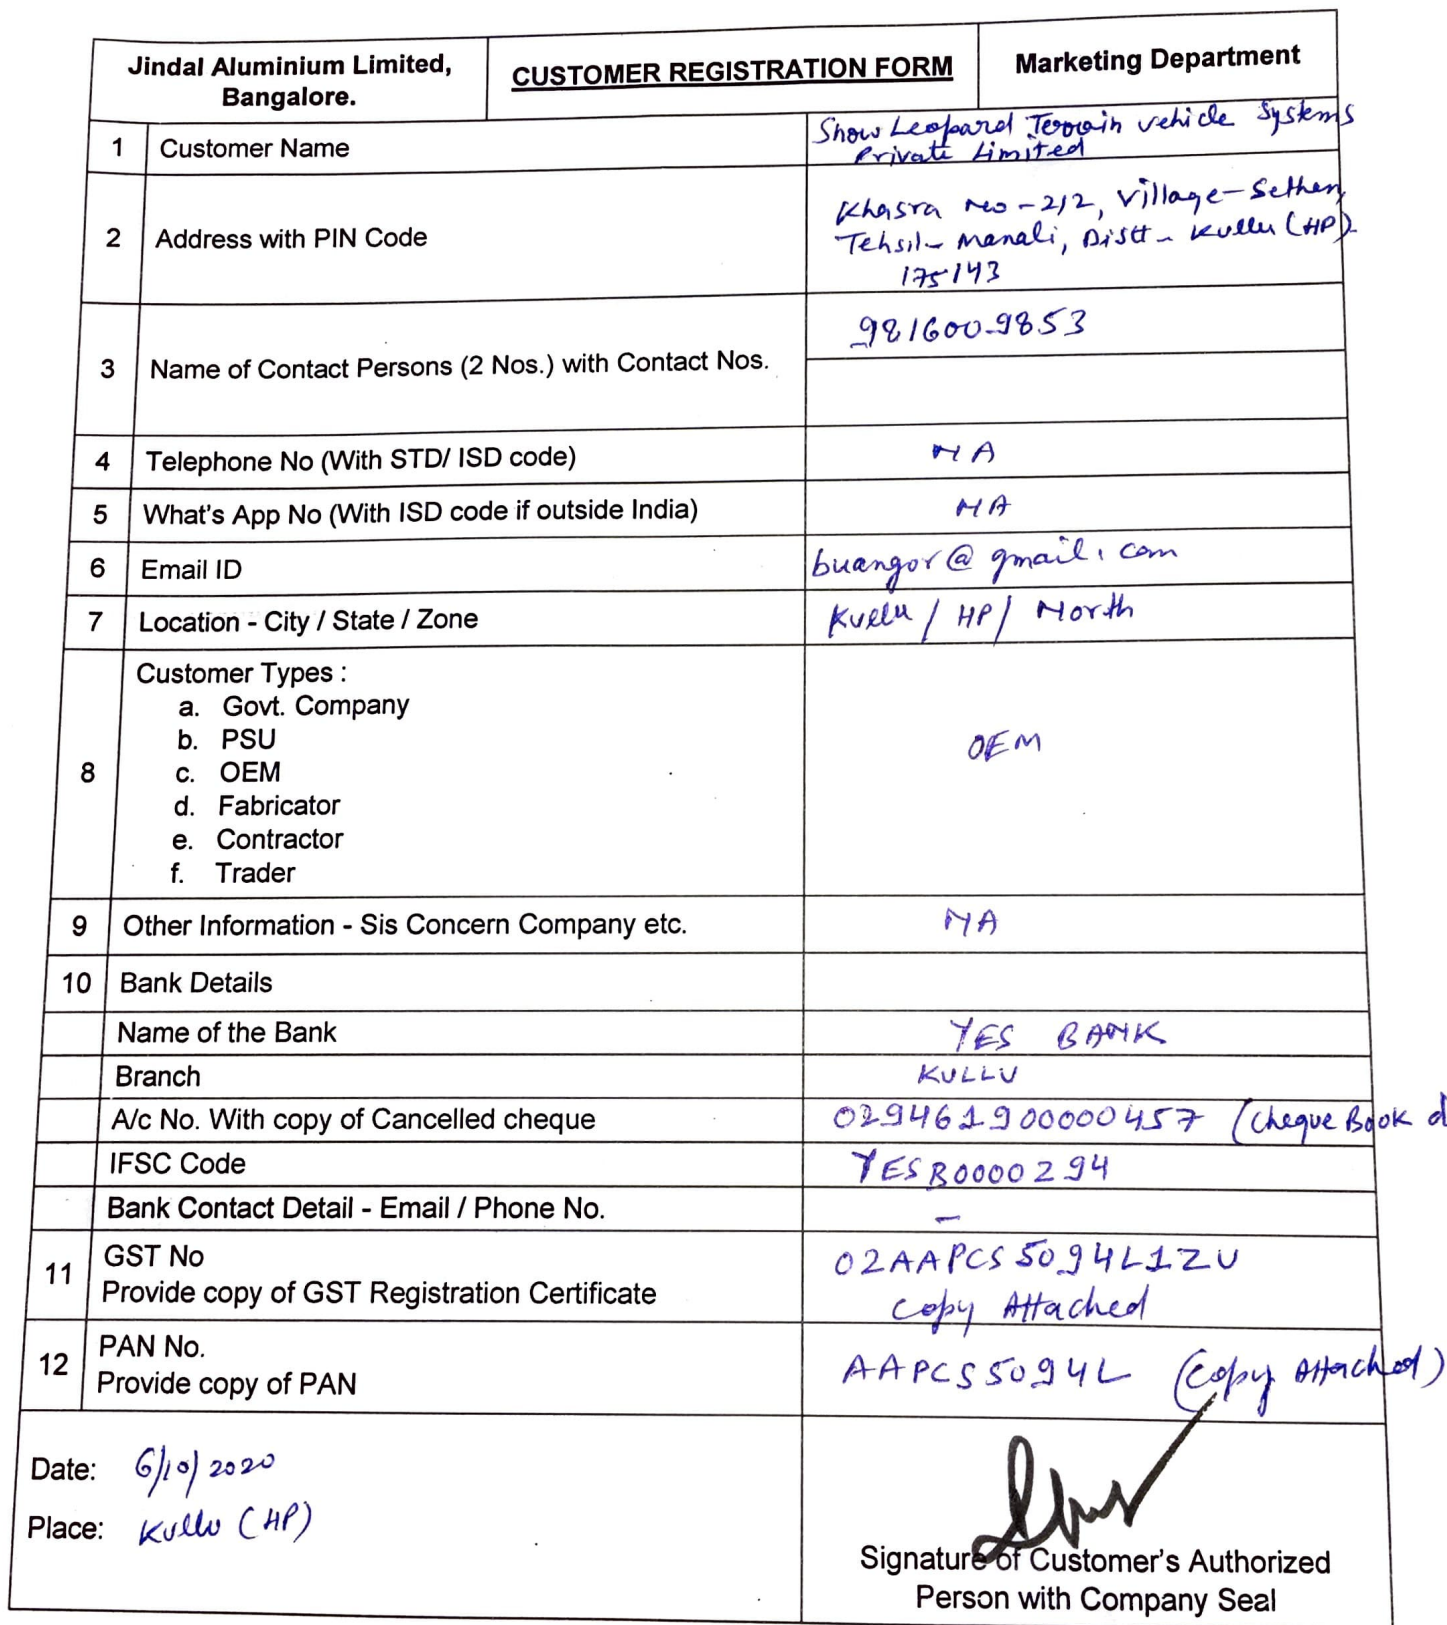 Jindal Aluminium Limited,
Bangalore.
CUSTOMER REGISTRATION FORM
Marketing Department
1 Customer Name
Show Leopard Terrain vehicle Systems
Private Limited
2 Address with PIN Code
Khasra No - 2/2, Village - Sethen,
Tehsil - Manali, Distt - Kullu (HP)-
175143
3 Name of Contact Persons (2 Nos.) with Contact Nos.
9816009853
4 Telephone No (With STD/ ISD code) NA
5 What's App No (With ISD code if outside India) NA
6 Email ID buangor@gmail.com
7 Location - City / State / Zone Kullu / HP / North
8 Customer Types :
a. Govt. Company
b. PSU
c. OEM
d. Fabricator
e. Contractor
f. Trader
OEM
9 Other Information - Sis Concern Company etc. NA
10 Bank Details
Name of the Bank YES BANK
Branch KULLU
A/c No. With copy of Cancelled cheque 029461900000457 (Cheque Book d
IFSC Code YESB0000294
Bank Contact Detail - Email / Phone No. -
11 GST No
Provide copy of GST Registration Certificate
02AAPCS5094L1ZU
Copy Attached
12 PAN No.
Provide copy of PAN
AAPCS5094L (Copy Attached)
Date: 6/10/2020
Place: Kullu (HP)
Signature of Customer's Authorized
Person with Company Seal